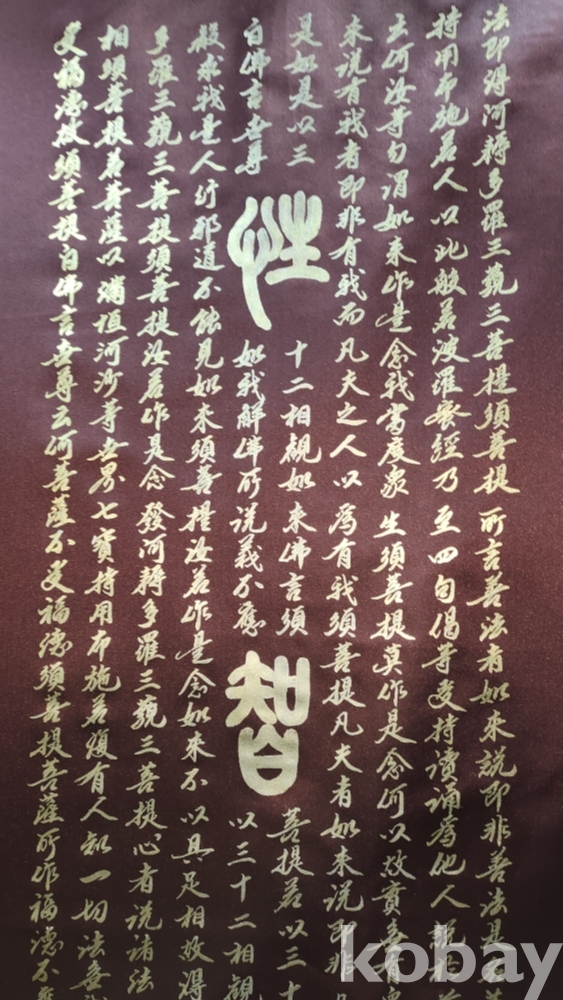 法即得阿耨多羅三藐三菩提須菩提所言善法者如來說即非善法是
持用布施若人以此般若波羅蜜經乃至四句偈等受持讀誦為他人說
云何汝等勿謂如來作是念我當度眾生須菩提莫作是念何以故實无有
來說有我者即非有我而凡夫之人以為有我須菩提凡夫者如來說即非
是如是以三十二相觀如來佛言須菩提若以三十
白佛言世尊如我解佛所說義不應以三十二相觀
性
智
聲求我是人行邪道不能見如來須菩提汝若作是念如來不以具足相故得
多羅三藐三菩提須菩提汝若作是念發阿耨多羅三藐三菩提心者說諸法
相須菩提若菩薩以滿恒河沙等世界七寶持用布施若復有人知一切法無
受福德故須菩提白佛言世尊云何菩薩不受福德須菩提菩薩所作福德不應
kobay